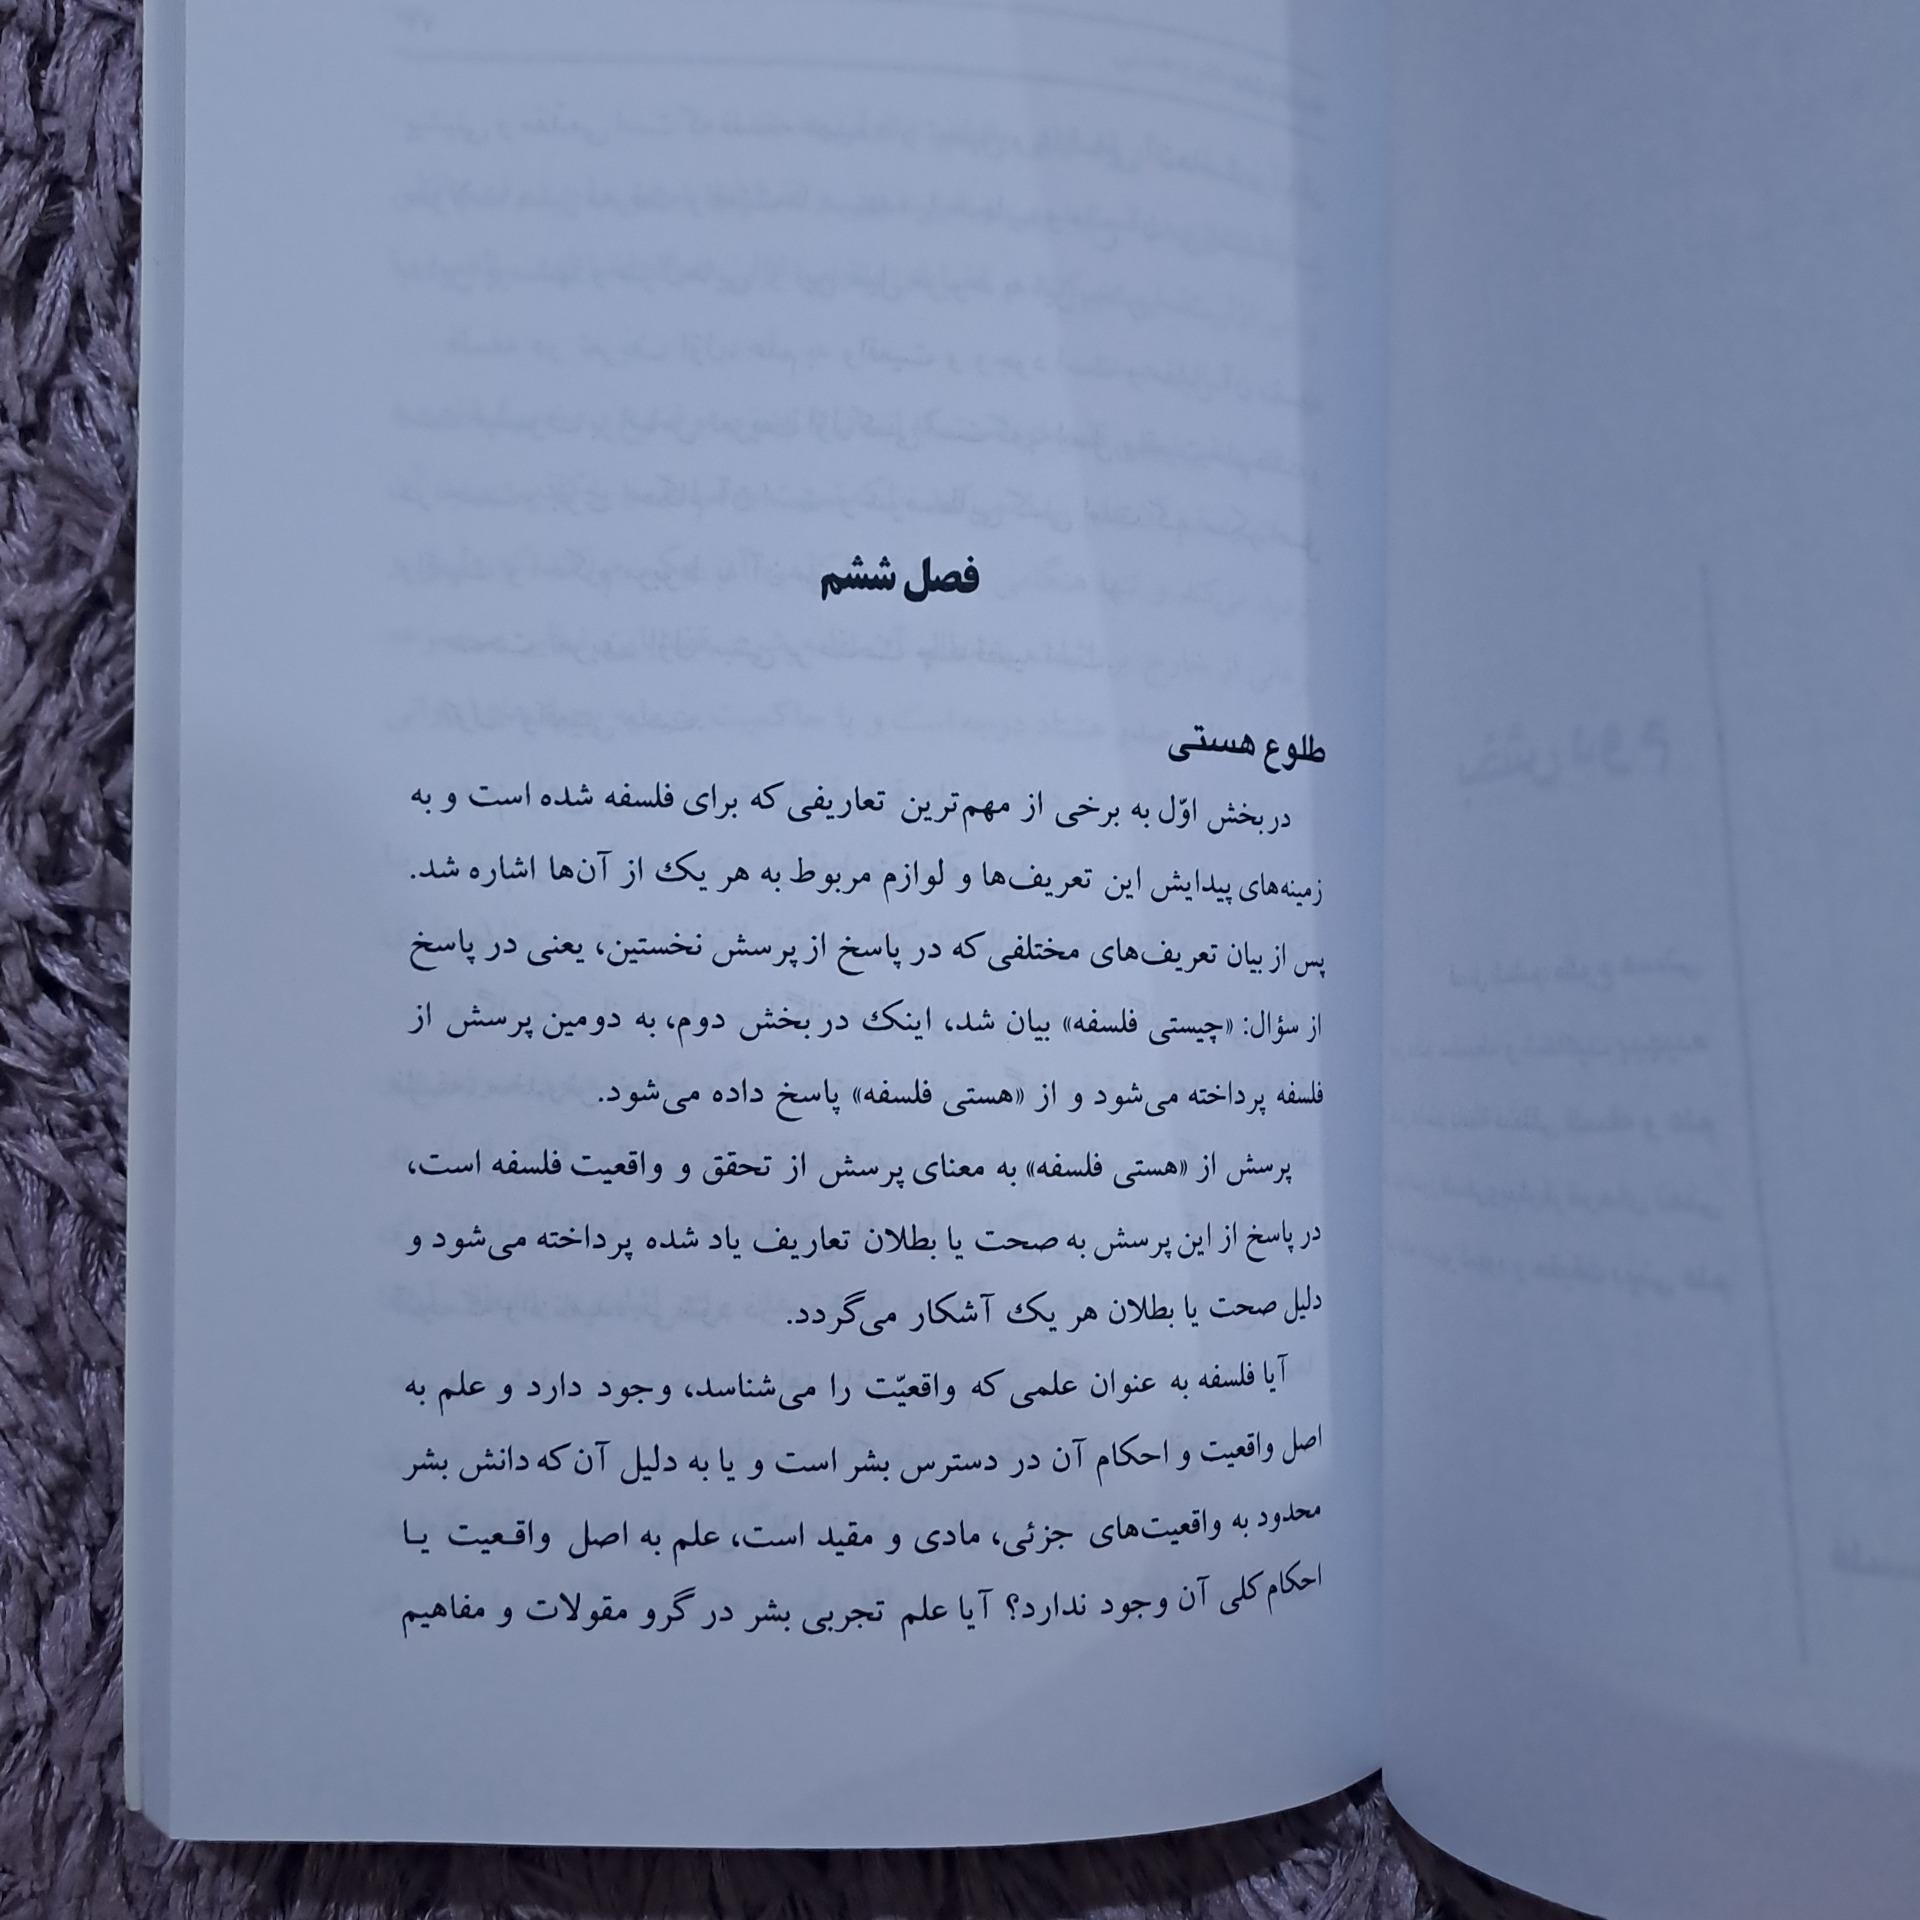 فصل ششم
طلوع هستی
در بخش اوّل به برخی از مهم‌ترین تعاریفی که برای فلسفه شده است و به
زمینه‌های پیدایش این تعریف‌ها و لوازم مربوط به هر یک از آن‌ها اشاره شد.
پس از بیان تعریف‌های مختلفی که در پاسخ از پرسش نخستین، یعنی در پاسخ
از سؤال: «چیستی فلسفه» بیان شد، اینک در بخش دوم، به دومین پرسش از
فلسفه پرداخته می‌شود و از «هستی فلسفه» پاسخ داده می‌شود.
پرسش از «هستی فلسفه» به معنای پرسش از تحقق و واقعیت فلسفه است،
در پاسخ از این پرسش به صحت یا بطلان تعاریف یاد شده پرداخته می‌شود و
دلیل صحت یا بطلان هر یک آشکار می‌گردد.
آیا فلسفه به عنوان علمی که واقعیّت را می‌شناسد، وجود دارد و علم به
اصل واقعیت و احکام آن در دسترس بشر است و یا به دلیل آن که دانش بشر
محدود به واقعیت‌های جزئی، مادی و مقید است، علم به اصل واقعیت یا
احکام کلی آن وجود ندارد؟ آیا علم تجربی بشر در گرو مقولات و مفاهیم